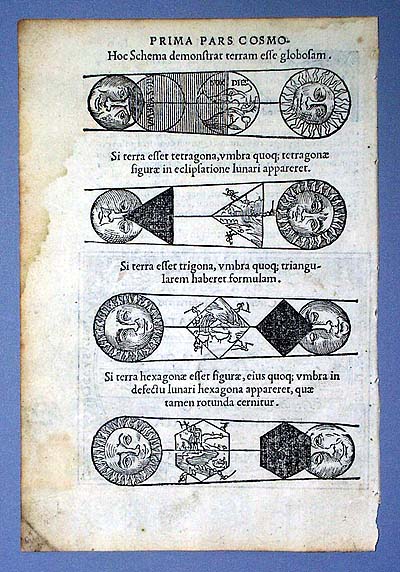 PRIMA PARS COSMO-
Hoc Schema demonstrat terram esse globosam.
Si terra esset tetragona, vmbra quoq; tetragonæ
figuræ in eclipsatione lunari appareret.
Si terra esset trigona, vmbra quoq; triangu-
larem haberet formulam.
Si terra hexagonæ esset figuræ, eius quoq; vmbra in
defectu lunari hexagona appareret, quæ
tamen rotunda cernitur.